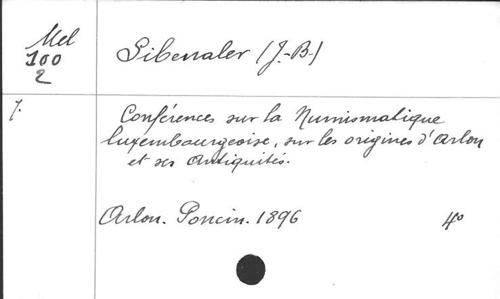 Mel
100
2
Sibenaler (J.-B.)
7.
Conférences sur la Numismatique
luxembourgeoise, sur les origines d'Arlon
et ses Antiquités.
Arlon. Poncin. 1896
4o